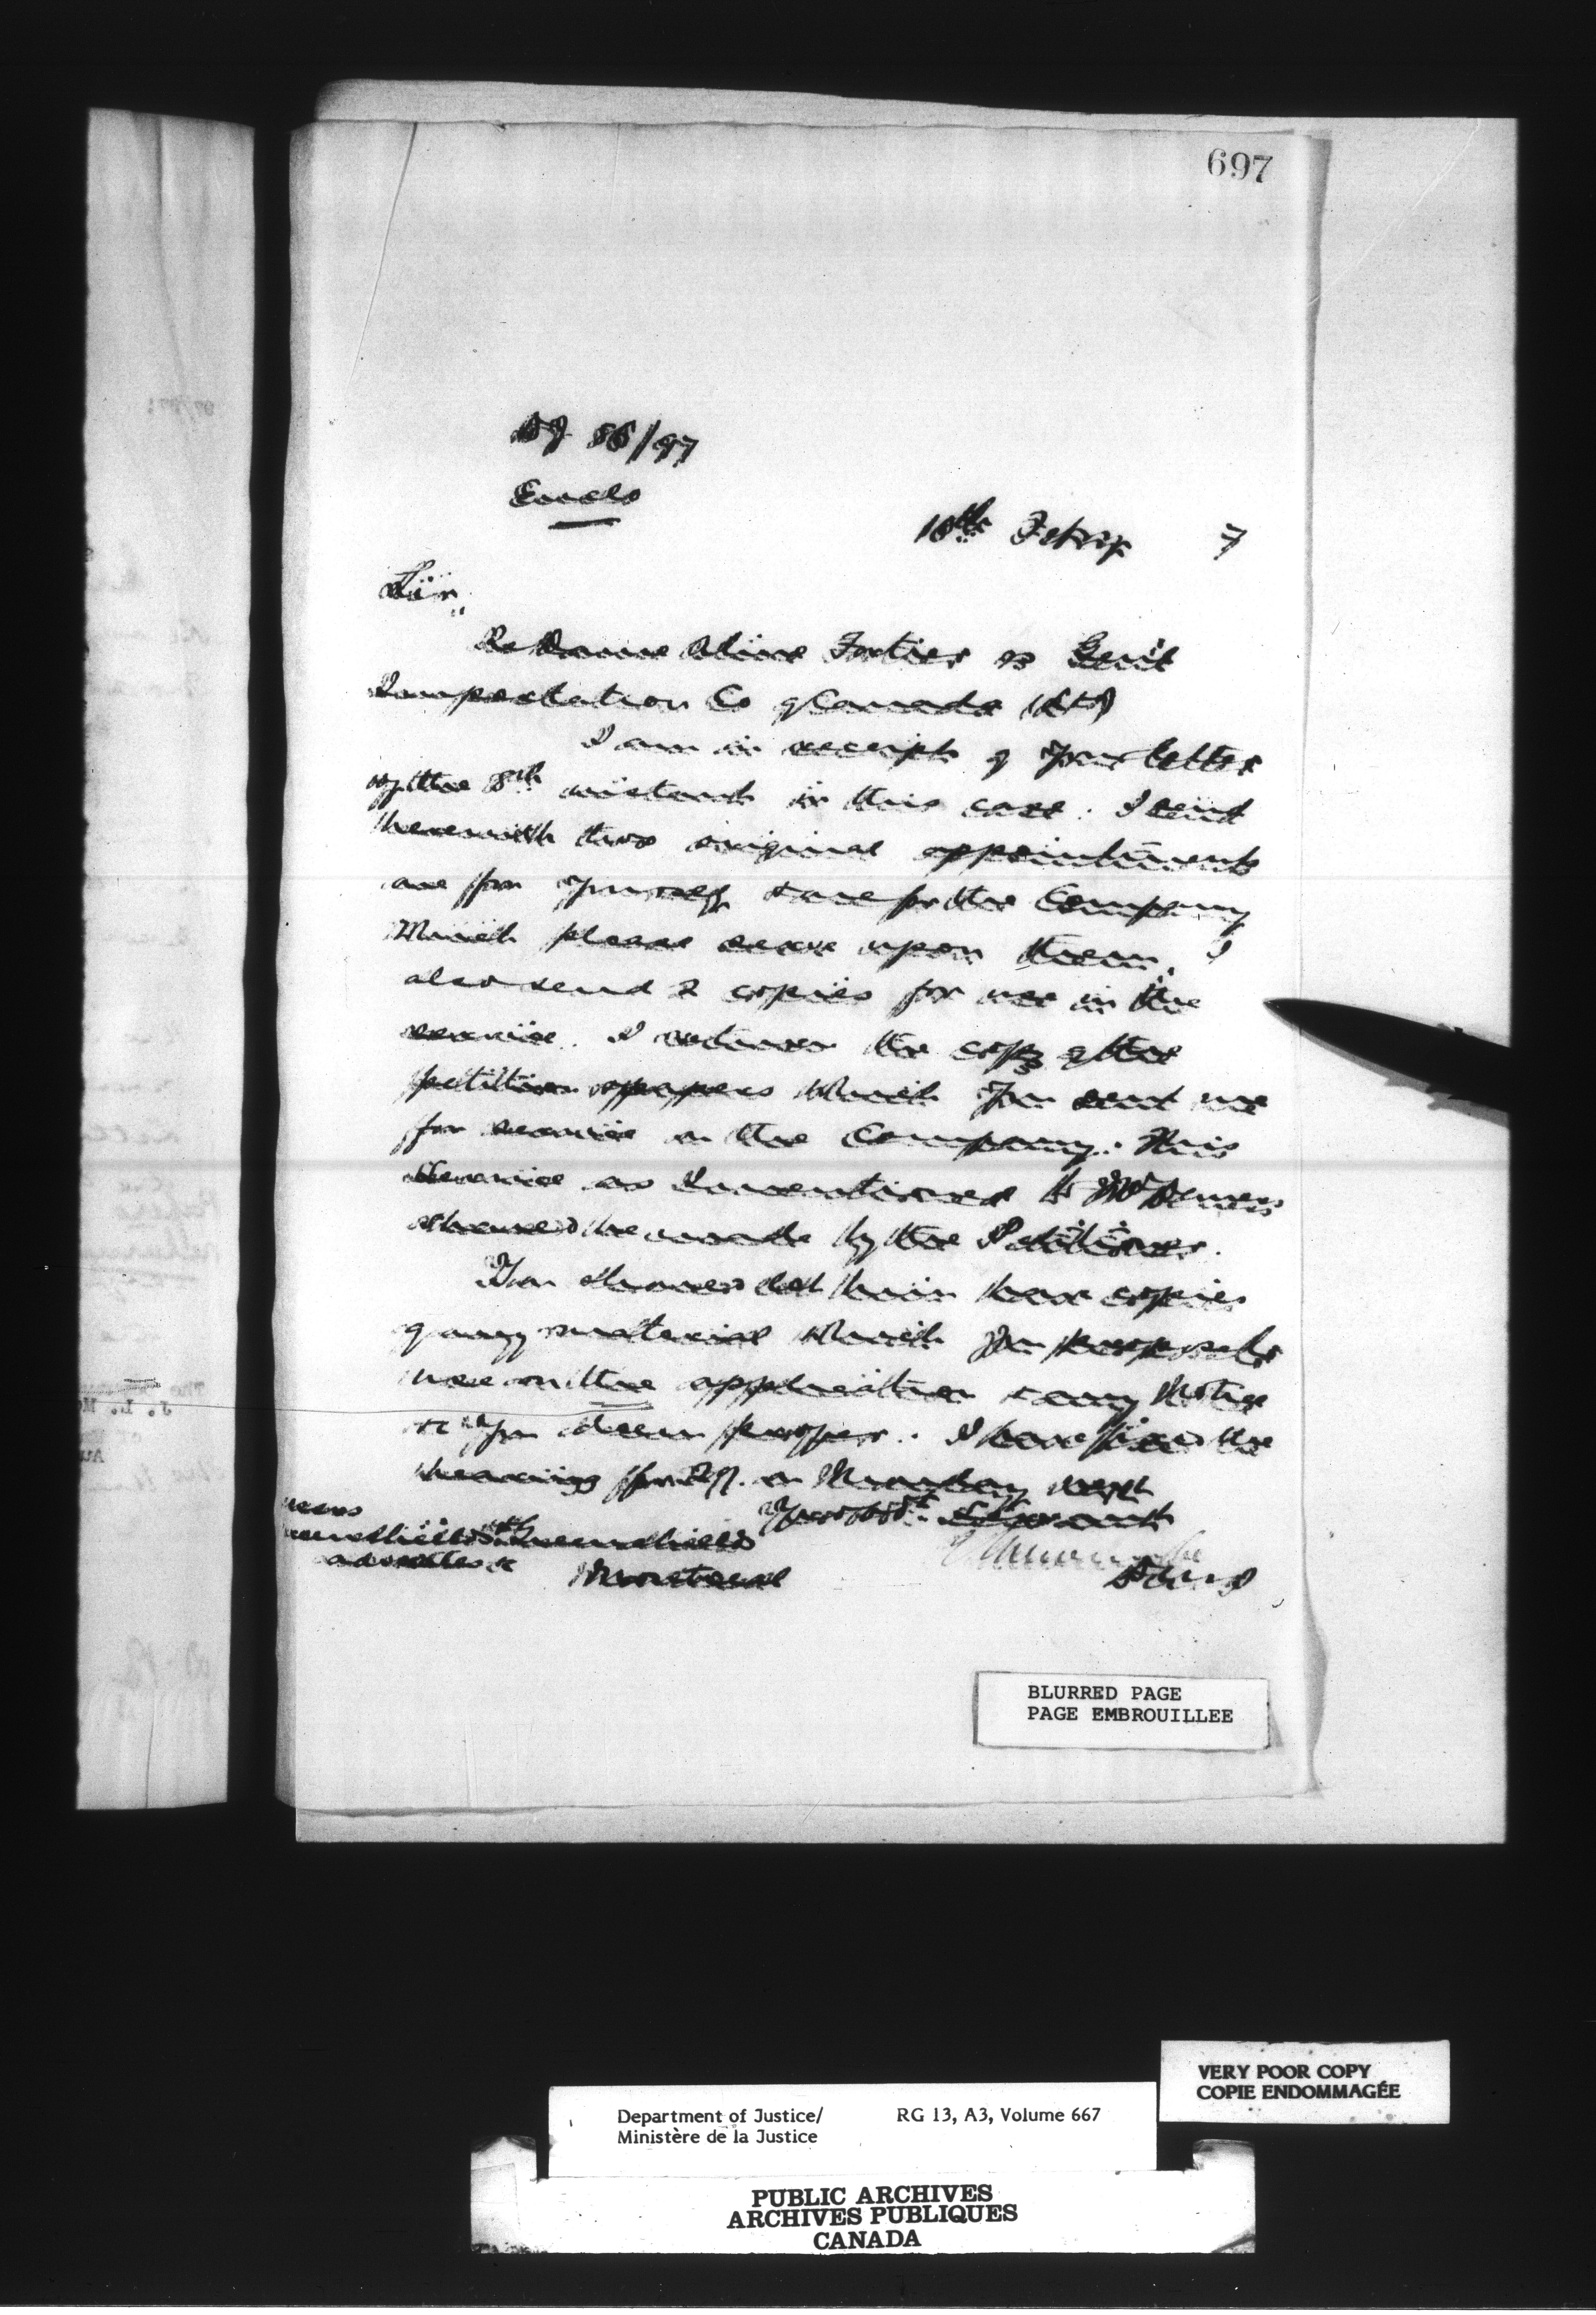 697
86/97
Encls
10th Febry 7
Sir,
Re Dame Aline Fortier vs Gen'l
Importation Co of Canada (Ltd)
I am in receipt of your letter
of the 8th instant in this case. I send
herewith two original appointments
one for yourself & one for the Company
which please serve upon them. I
also send 2 copies for use in the
service. I return the copy of the
petition & papers which you sent me
for service on the Company. This
Service as I mentioned to Mr Demers
should be made by the Petitioner.
You should let him have copies
of any material which you propose to
use on the application & any Notice
&c you deem proper. I have fixed the
hearing for on Monday next
Your obdt Servant
Greenshields & Greenshields
Advocates &c
Montreal
BLURRED PAGE
PAGE EMBROUILLEE
VERY POOR COPY
COPIE ENDOMMAGÉE
Department of Justice/ RG 13, A3, Volume 667
Ministère de la Justice
PUBLIC ARCHIVES
ARCHIVES PUBLIQUES
CANADA